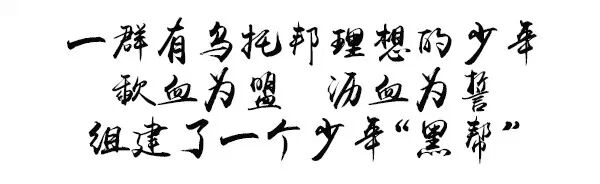 一群有乌托邦理想的少年
歃血为盟 沥血为誓
组建了一个少年“黑帮”